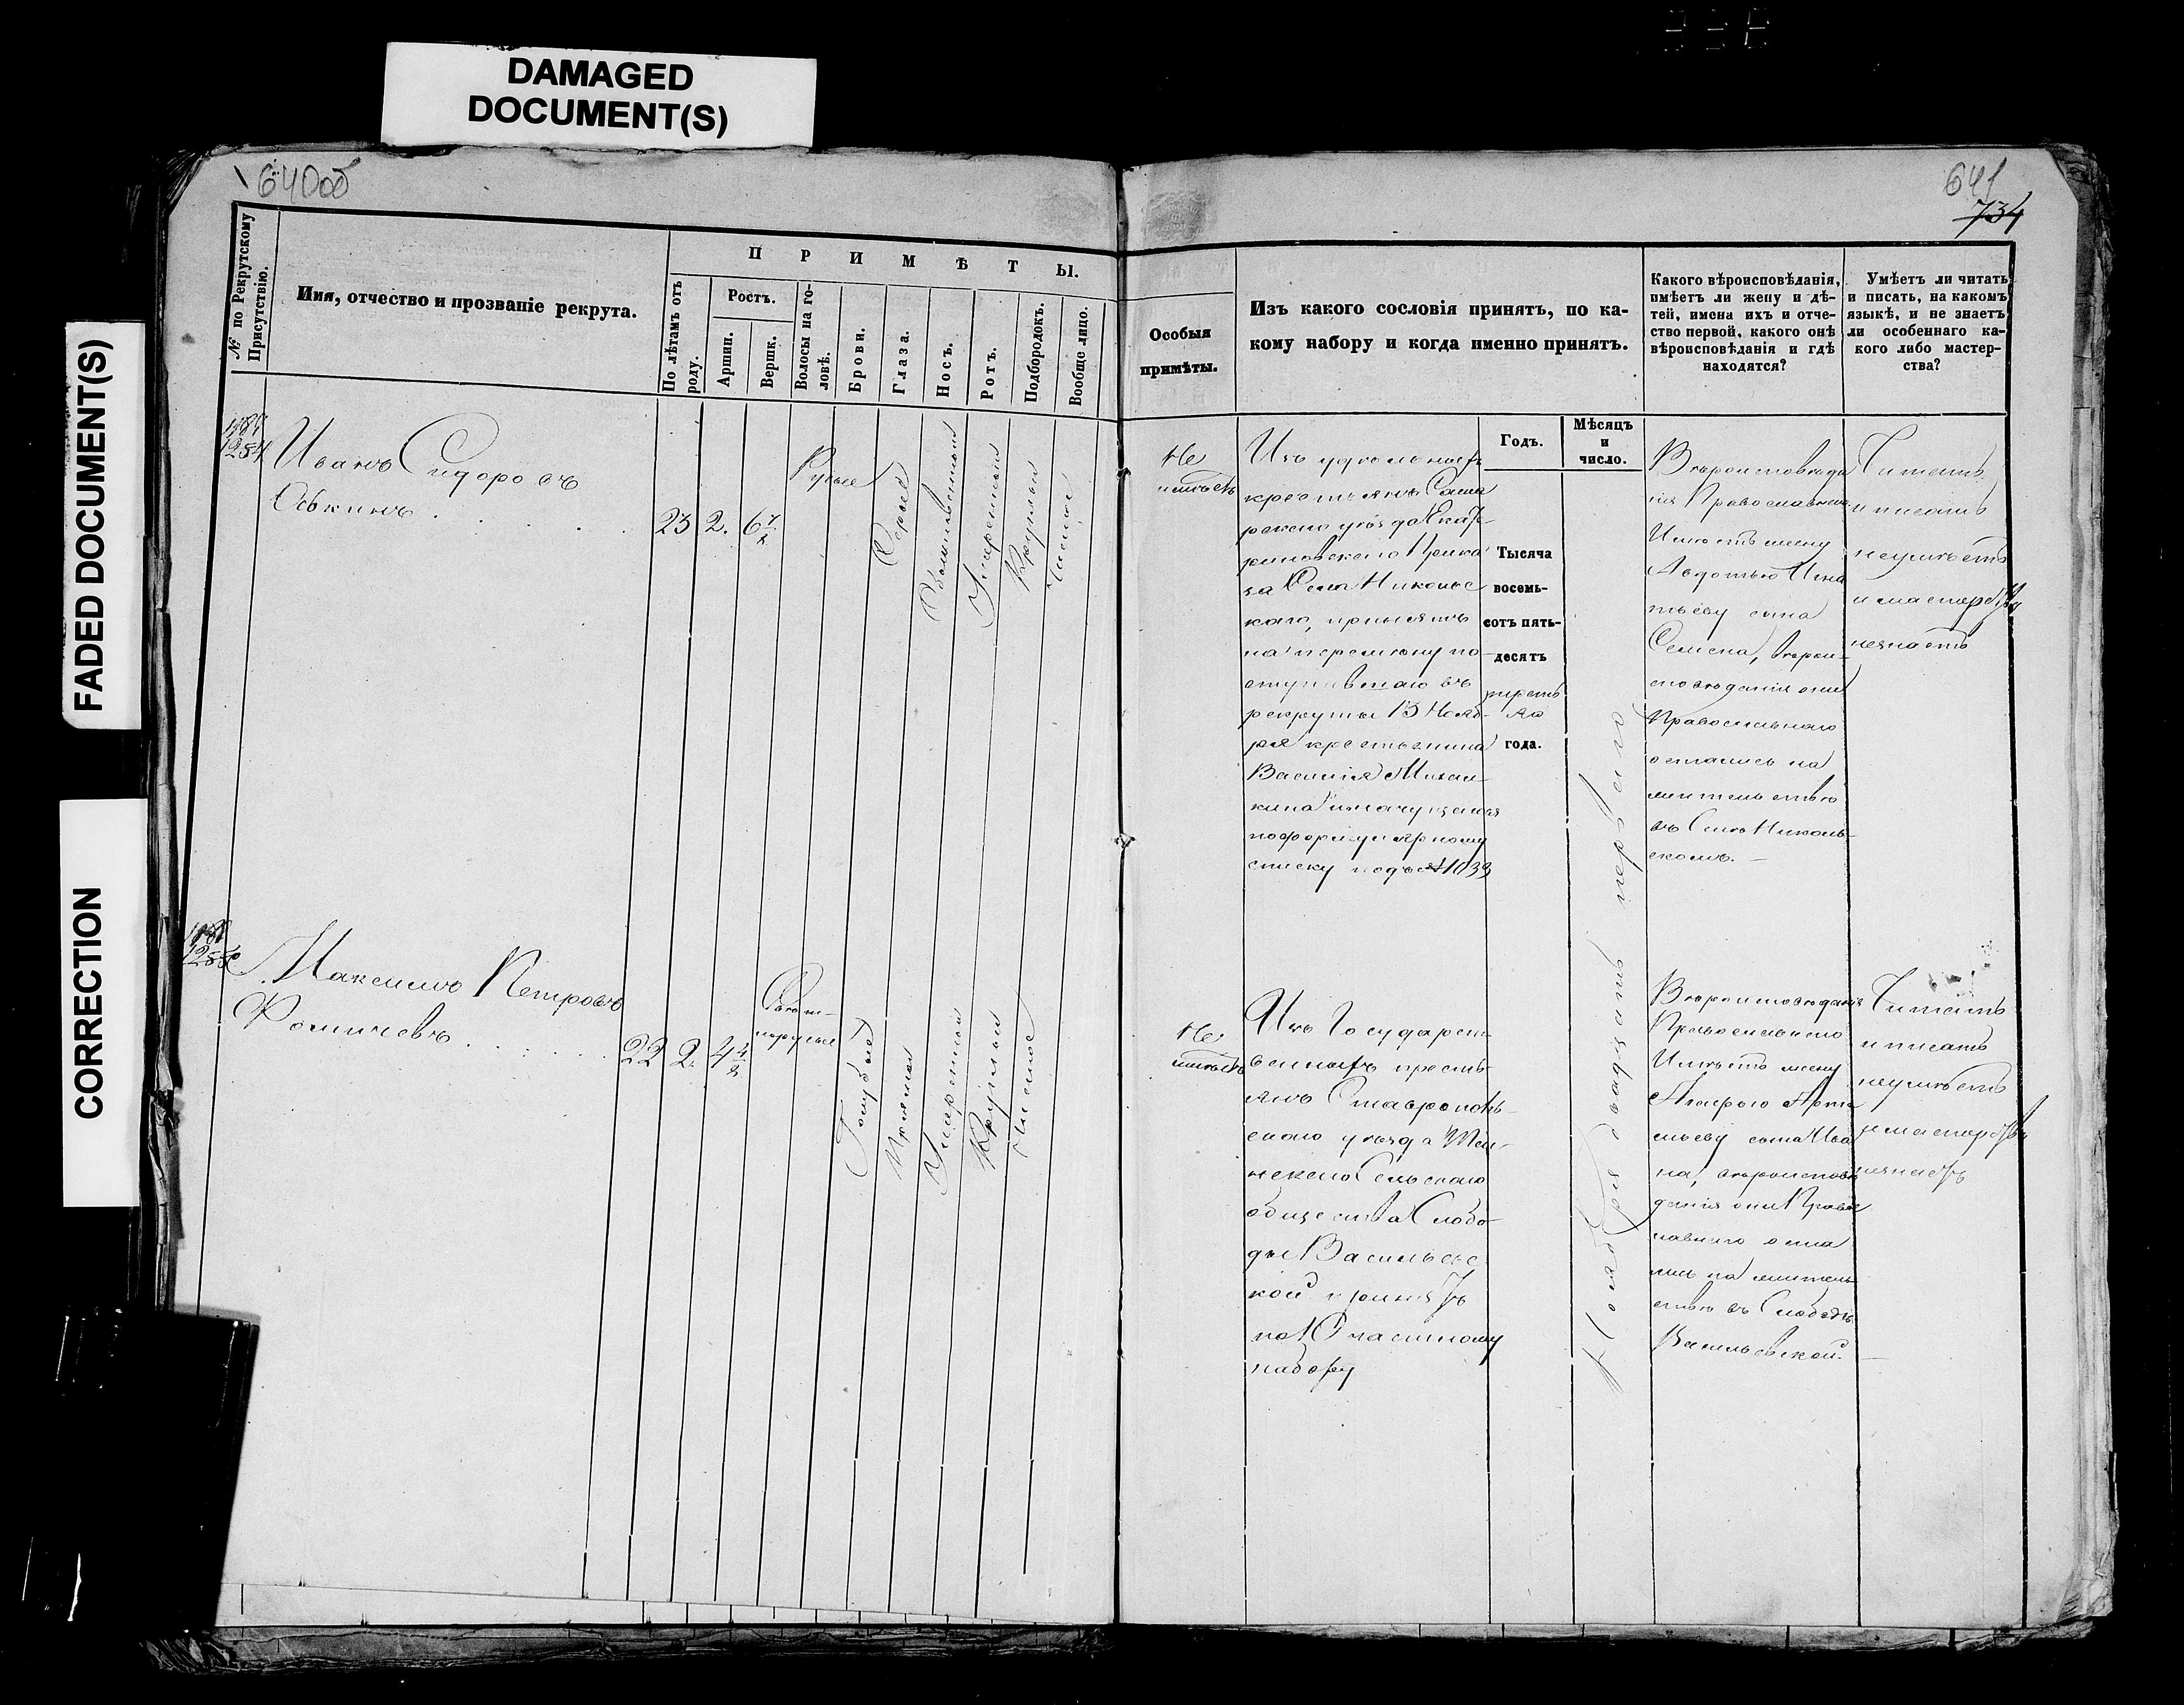 DAMAGED
DOCUMENT(S)
FADED DOCUMENT(S)
CORRECTION
640об
641
734
№ по Рекрутскому
Присутствію.
Имя, отчество и прозваніе рекрута.
ПРИМѢТЫ.
По лѣтамъ отъ
роду.
Ростъ.
Аршин.
Вершк.
Волосы на го-
ловѣ.
Брови.
Глаза.
Носъ.
Ротъ.
Подбородокъ.
Вообще лицо.
Особыя
примѣты.
Изъ какого сословія принятъ, по ка-
кому набору и когда именно принятъ.
Какого вѣроисповѣданія,
имѣетъ ли жену и дѣ-
тей, имена ихъ и отче-
ство первой, какого онѣ
вѣроисповѣданія и гдѣ
находятся?
Умѣетъ ли читать
и писать, на какомъ
языкѣ, и не знаетъ
ли особеннаго ка-
кого либо мастер-
ства?
Годъ.
Мѣсяцъ
и
число.
1254
Иванъ Сидоровъ
Оськинъ
23 2. 6
Русые
Сѣрые
Умѣренный
Круглый
Чистое
Не
имѣетъ
Изъ удѣльныхъ
крестьянъ Сама
рскаго уѣзда Екат-
риновскаго Прика
за Села Николье
каго, принятъ
на перемѣну по-
ступившаго въ
рекруты 13 Нояб-
ря крестьянина
Василія
списку подъ № 1033
Тысяча
восемь-
сотъ пять-
десятъ
третья
го
года.
Ноября двадцать перваго
Вѣроисповѣда
нія Православнаго
Имѣетъ жену
Авдотью Игна
тьеву сына
Семена, вѣрои-
сповѣданія они
Православнаго
остались на
жительствѣ
въ Селѣ Николь-
скомъ.
Читать
и писать
неумѣетъ
и мастерства
незнаетъ
1255
Максимъ Петровъ
Фомичевъ
22 2. 4
Свѣт-
лорусые
Голубые
Прямой
Умѣренный
Круглый
Чистое
Не
имѣетъ
Изъ Государст-
венныхъ кресть
янъ Ставрополь-
скаго уѣзда
Сельскаго
общества Слобо-
ды Васильевс
кой принятъ
по 10 частному
набору
Вѣроисповѣданія
Православнаго
Имѣетъ жену
Арте
мьеву сына Ива
на, вѣроисповѣ
данія они Правос
лавнаго оста
лись на житель
ствѣ въ Слободѣ
Васильевской.
Читать
и писать
неумѣетъ
и мастерства
незнаетъ